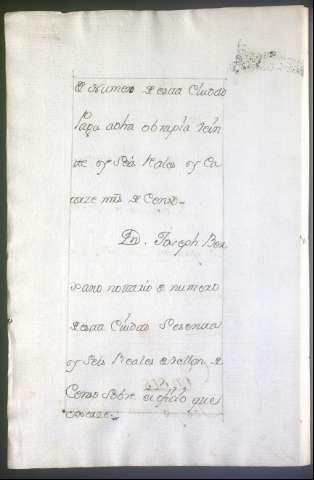 Numero de esta Ciudad
Paga adha obrapia Vein
te y Seis Reales y Ca
torze ms de Censo
Dn. Joseph Bex
xano notario de numero
de esta Ciudad Sesenta
y Seis Reales de vellon de
Censo sobre el ofizio que